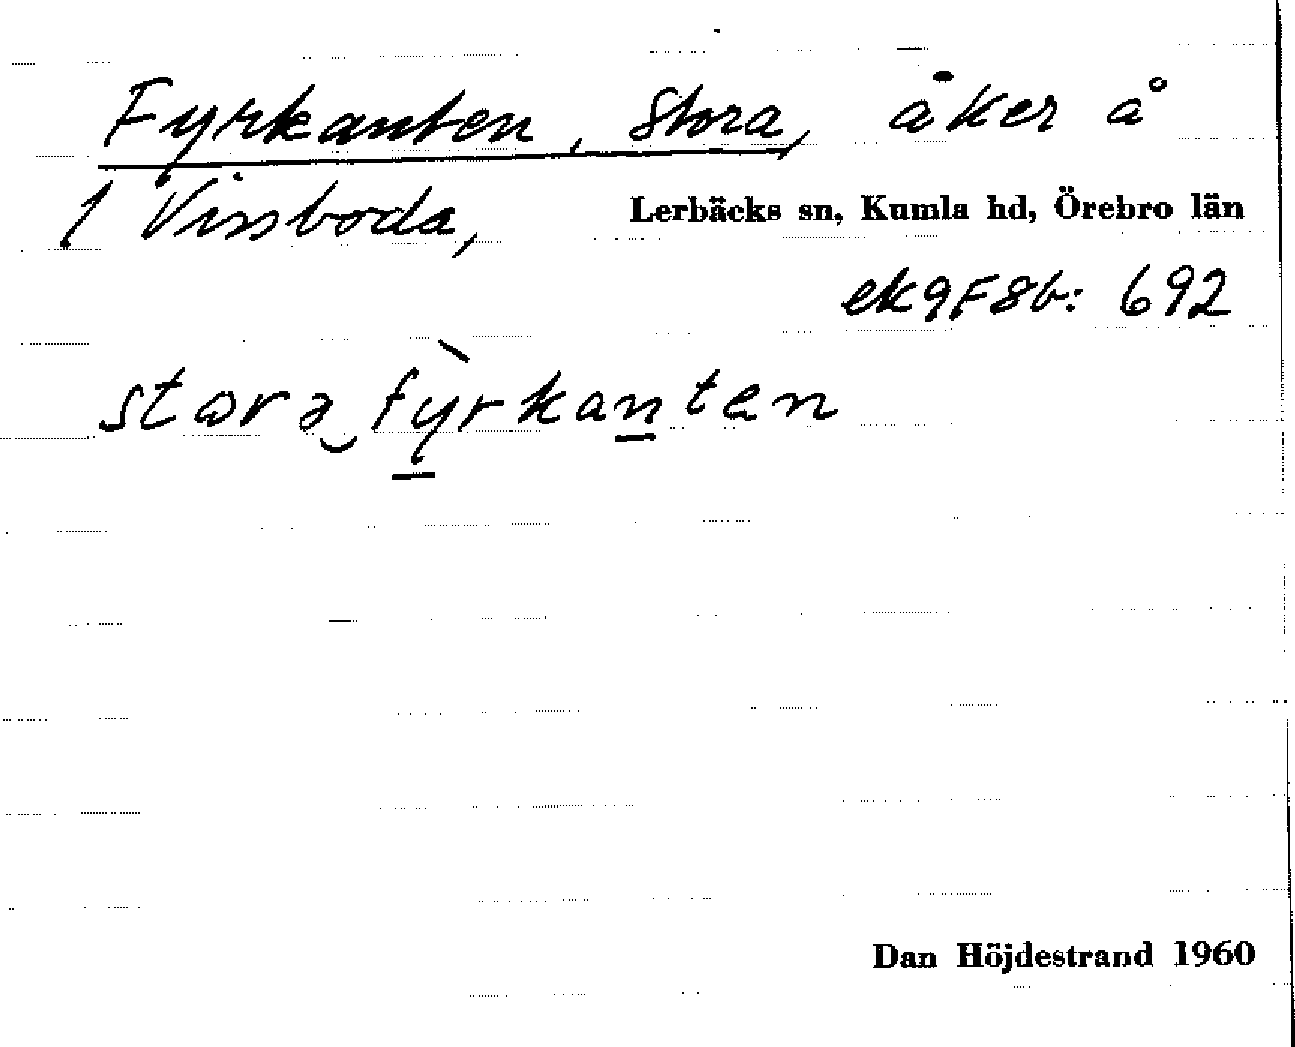 Fyrkanten, Stora, åker å
1 Vissboda,
Lerbäcks sn, Kumla hd, Örebro län
ek9F8b: 692
stora fỳrkanten
Dan Höjdestrand 1960